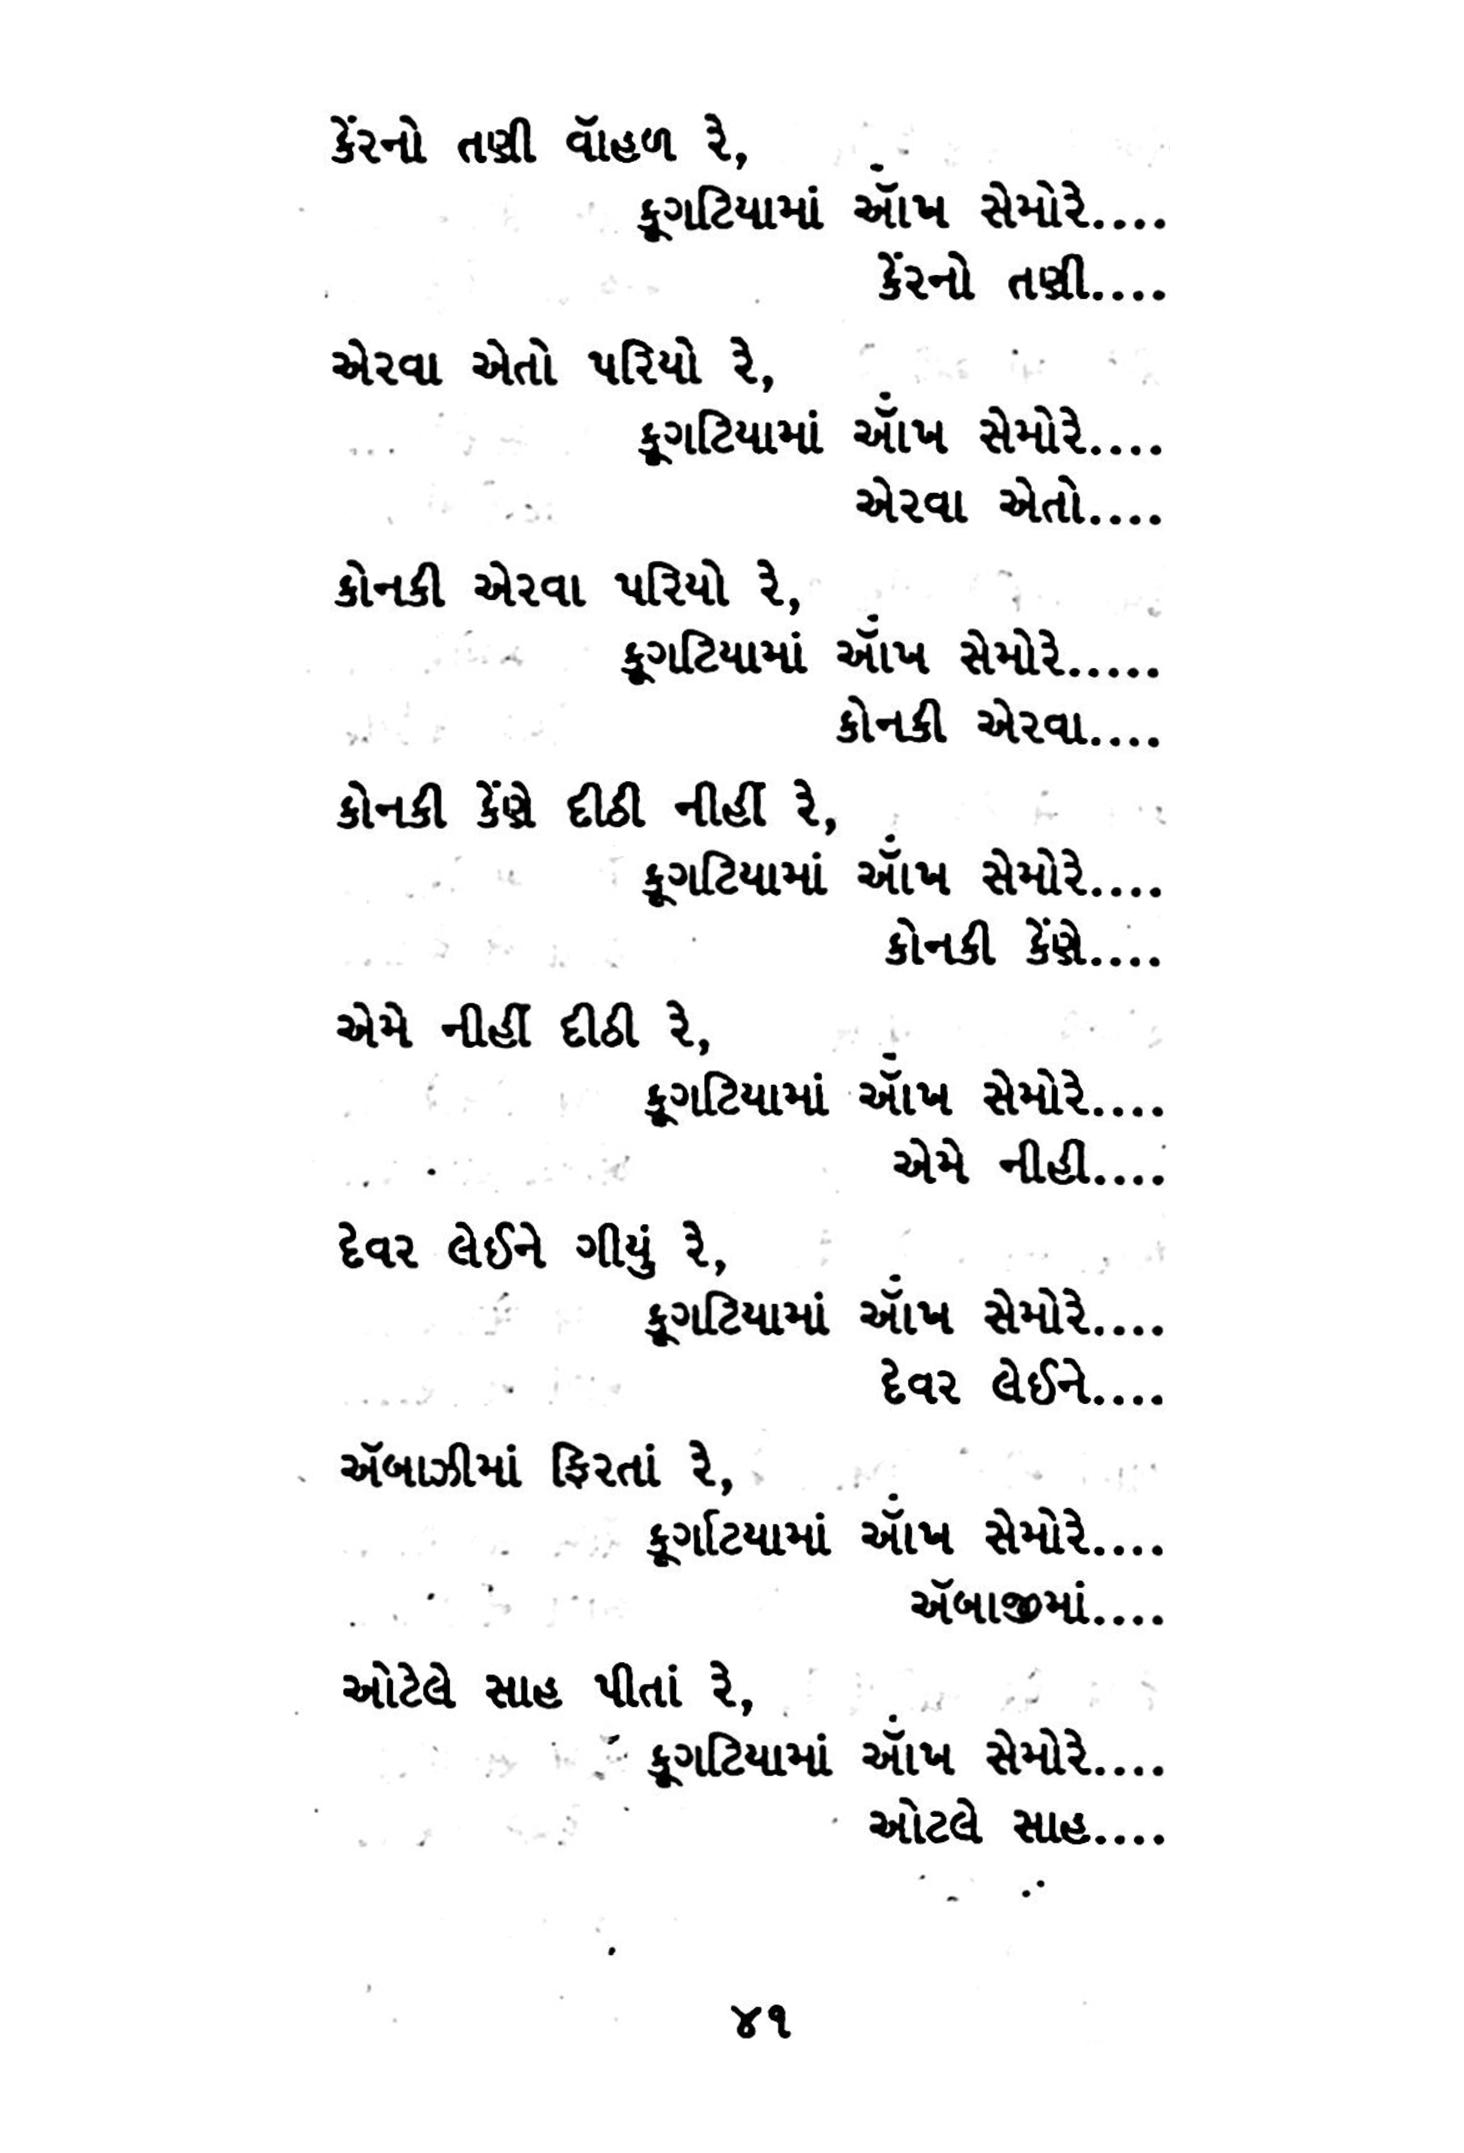 કેંરનો તણી વૉહળ રે,
કૂગટિયામાં ઑંખ સેમોરે....
કેંરનો તણી....
એરવા એતો પરિયો રે,
કૂગટિયામાં ઑંખ સેમોરે....
એરવા એતો....
કોનકી એરવા પરિયો રે,
કૂગટિયામાં ઑંખ સેમોરે.....
કોનકી એરવા....
કોનકી કેંણે દીઠી નીહીં રે,
કૂગટિયામાં ઑંખ સેમોરે....
કોનકી કેંણે....
એમે નીહીં દીઠી રે,
કૂગટિયામાં ઑંખ સેમોરે....
એમે નીહી....
દેવર લેઈને ગીયું રે,
કૂગટિયામાં ઑંખ સેમોરે....
દેવર લેઈને....
ઍબાઝીમાં ફિરતાં રે,
કૂર્ગાટયામાં ઑંખ સેમોરે....
ઍબાજીમાં....
ઓટેલે સાહ પીતાં રે,
કૂગટિયામાં ઑંખ સેમોરે....
ઓટલે સાહ....
૪૧